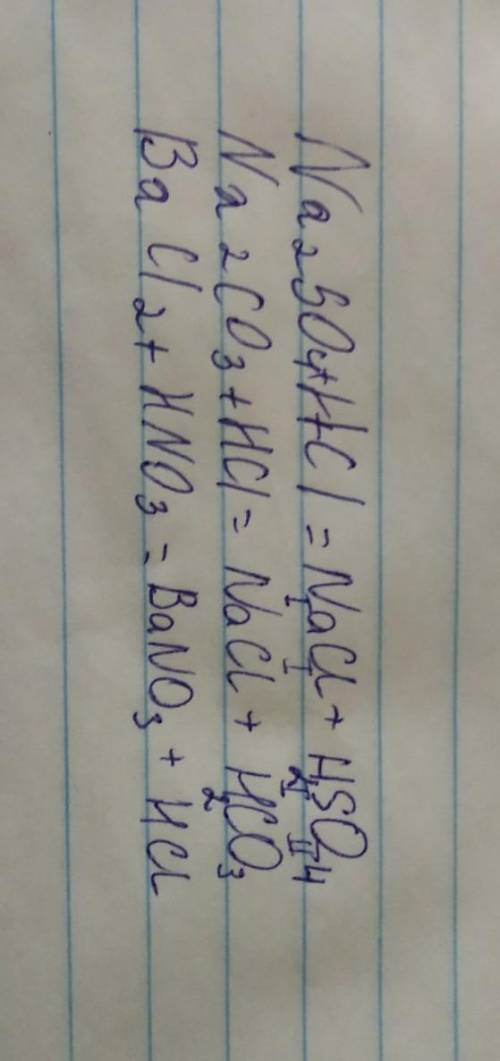 Na₂SO₄+HCl = NaCl + H₂SO₄
I I I II
Na₂CO₃+HCl = NaCl + H₂CO₃
BaCl₂+ HNO₃ = BaNO₃ + HCl